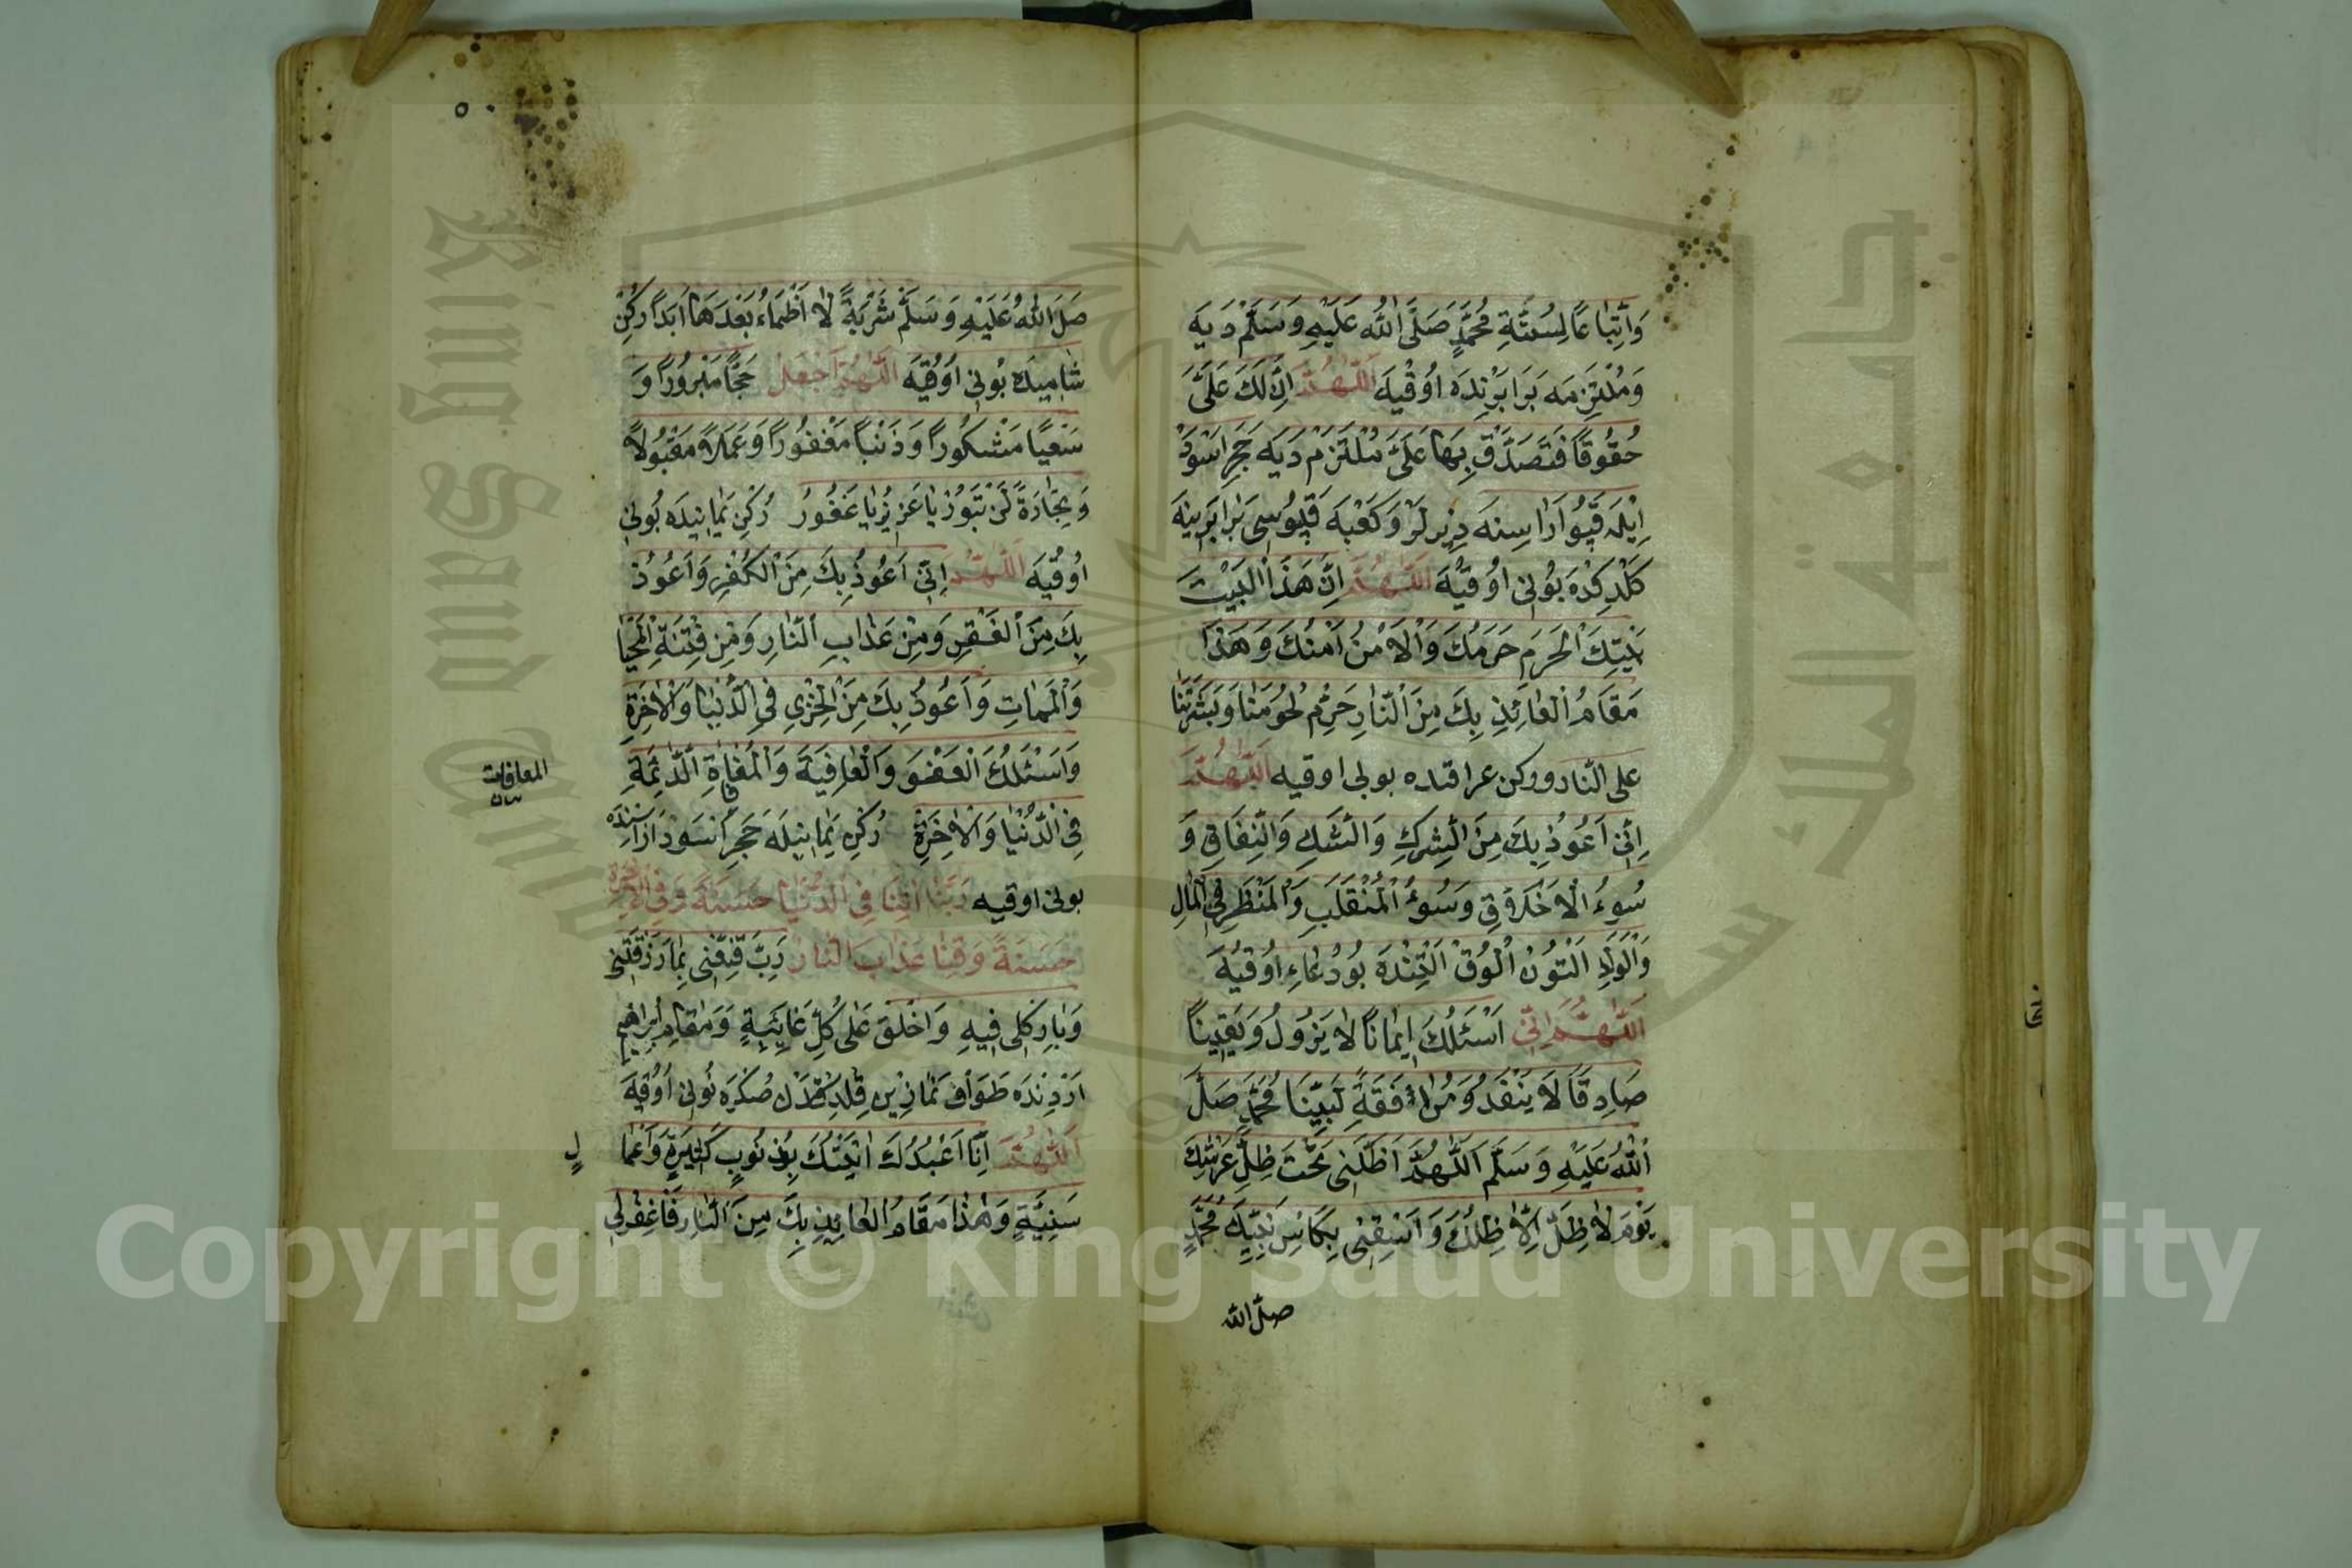 وَاتِّبَاعًا لِسُنَّةِ مُحَمَّدٍ صَلَّى اللّٰهُ عَلَيْهِ وَسَلَّمْ دَيَه
وَمُلْتَزِمَه بَرَابَرِنْدَه اُوقُيَه اَللّٰهُمَّ اِنَّ لَكَ عَلَىَّ
حُقُوقًا فَتَصَدَّقْ بِهَا عَلَىَّ مُلْتَزَمْ دَيَه حَجَرِ اَسْوَدْ
اِيْلَه قَپُو اَرَاسِنَه دِيرلَرْ وَكَعْبَه قَپُوسِى بَرَابَرِينَه
كَلْدِكْدَه بُونِى اوُقُيَه اَللّٰهُمَّ اِنَّ هَذَا الْبَيْتَ
بَيْتِكَ الْحَرَمِ حَرَمُكَ وَالْاَمْنُ اَمْنُكَ وَهَذَا
مَقَامُ الْعَائِذِ بِكَ مِنَ النَّارِ حَرِّمْ لُحُومَنَا وَبَشَرَتَنَا
على النّار وركن عراقده بونى اوقيه اَللّٰهُمَّ
اِنِّى اَعُوذُ بِكَ مِنَ الشِّرْكِ وَالشَّكِ وَالنِّفَاقِ وَ
سُوءُ الْاَخْلَاقِ وَسُوءُ الْمُنْقَلَبِ وَالْمَنْظَرِ فِى الْمَالِ
وَالْوَلَدِ اَلْتُونْ اُلُوقْ اَلْتِنْدَه بُو دُعَاءِ اُوقُيَه
اَللّٰهُمَّ اِنِّى اَسْئَلُكَ اِيمَانًا لَا يَزُولُ وَيَقِينًا
صَادِقًا لَا يَنْفَدُ وَمُرَافَقَةِ نَبِيِّنَا مُحَمَّدٍ صَلَّى
اللّٰهُ عَلَيْهِ وَسَلَّم اَللّٰهُمَّ اَظِلَّنِى تَحْتَ ظِلِّ عَرْشِكَ
يَوْمَ لَا ظِلَّ اِلَّا ظِلُّكَ وَاَسْقِنِى بِكَاْسِ نَبِيِّكَ مُحَمَّدٍ
صلّى الله
صَلَّى اللّٰهُ عَلَيْهِ وَسَلَّمْ شَرْبَةً لَا اَظْمَاءُ بَعْدَهَا اَبَدًا رُكْنِ
شَامِيدَه بُونِى اوُقُيَه اَللّٰهُمَّ اجْعَلْ حَجًّا مَبْرُورًا وَ
سَعْيًا مَشْكُورًا وَذَنْبًا مَغْفُورًا وَعَمَلًا مَقْبُولًا
وَتِجَارَةً لَنْ تَبُورْ يَا عَزِيزُ يَا غَفُورُ رُكْنِ يَمَانِيدَه بُونِى
اوُقُيَه اَللّٰهُمَّ اِنِّى اَعُوذُ بِكَ مِنَ الْكُفْرِ وَاَعُوذُ
بِكَ مِنَ الْفَقْرِ وَمِنْ عَذَابِ النَّارِ وَمِنْ فِتْنَةِ الْمَحْيَا
وَالْمَمَاتِ وَاَعُوذُ بِكَ مِنَ الْخِزْىِ فِى الدُّنْيَا وَالْاٰخِرَةِ
وَاَسْئَلُكَ الْعَفْوَ وَالْعَافِيَةَ وَالْمُعَافَاةِ الدَّئِمَةِ
المعافات
فِى الدُّنْيَا وَالْاٰخِرَةِ رُكْنِ يَمَانِيلَه حَجَرِ اَسْوَدْ اَرَاسِنْدَه
بونى اوقيه رَبَّنَا اٰتِنَا فِى الدُّنْيَا حَسَنَةً وَفِى الْاٰخِرَةِ
حَسَنَةً وَقِنَا عَذَابَ النَّارِ رَبِّ قَنِّعْنِى بِمَا رَزَقْتَنِى
وَبَارِكْ لِى فِيهِ وَاخْلَقْ عَلَى كُلِّ غَائِبَةٍ وَمَقَامِ اِبْرَاهِيم
اَرْدِنْدَه طَوَافْ نَمَازِيْن قِلْدِقْدَنْ صُكْرَه بُونِى اوُقُيَه
اَللّٰهُمَّ اِنَّا اَعْبُدُكَ اَتَيْتُكَ بِذُنُوبٍ كَثِيرَةٍ وَاَعْمَا
لٍ
سَيِّئَةٍ وَهٰذَا مَقَامُ الْعَائِذِ بِكَ مِنَ النَّارِ فَاغْفِرْلِى
Copyright © King Saud University
King Saud University
جامعة الملك سعود